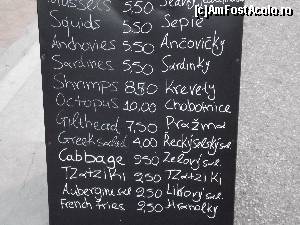 (c)AmFostAcolo.ro
Mussels
Squids 5,50 Sépie
Anchovies 5,50 Ančovičky
Sardines 5,50 Sardinky
Shrimps 8,50 Krevety
Octopus 10,00 Chobotnice
Gilthead 7,50 Pražma
Greek salad 4,00 Řecký selský sal.
Cabbage Zelový sal.
TZaTZiKi 2,50 TZaTZiKi
Aubergine sal 2,50 Lilkový sal.
French Fries 2,50 Hranolky